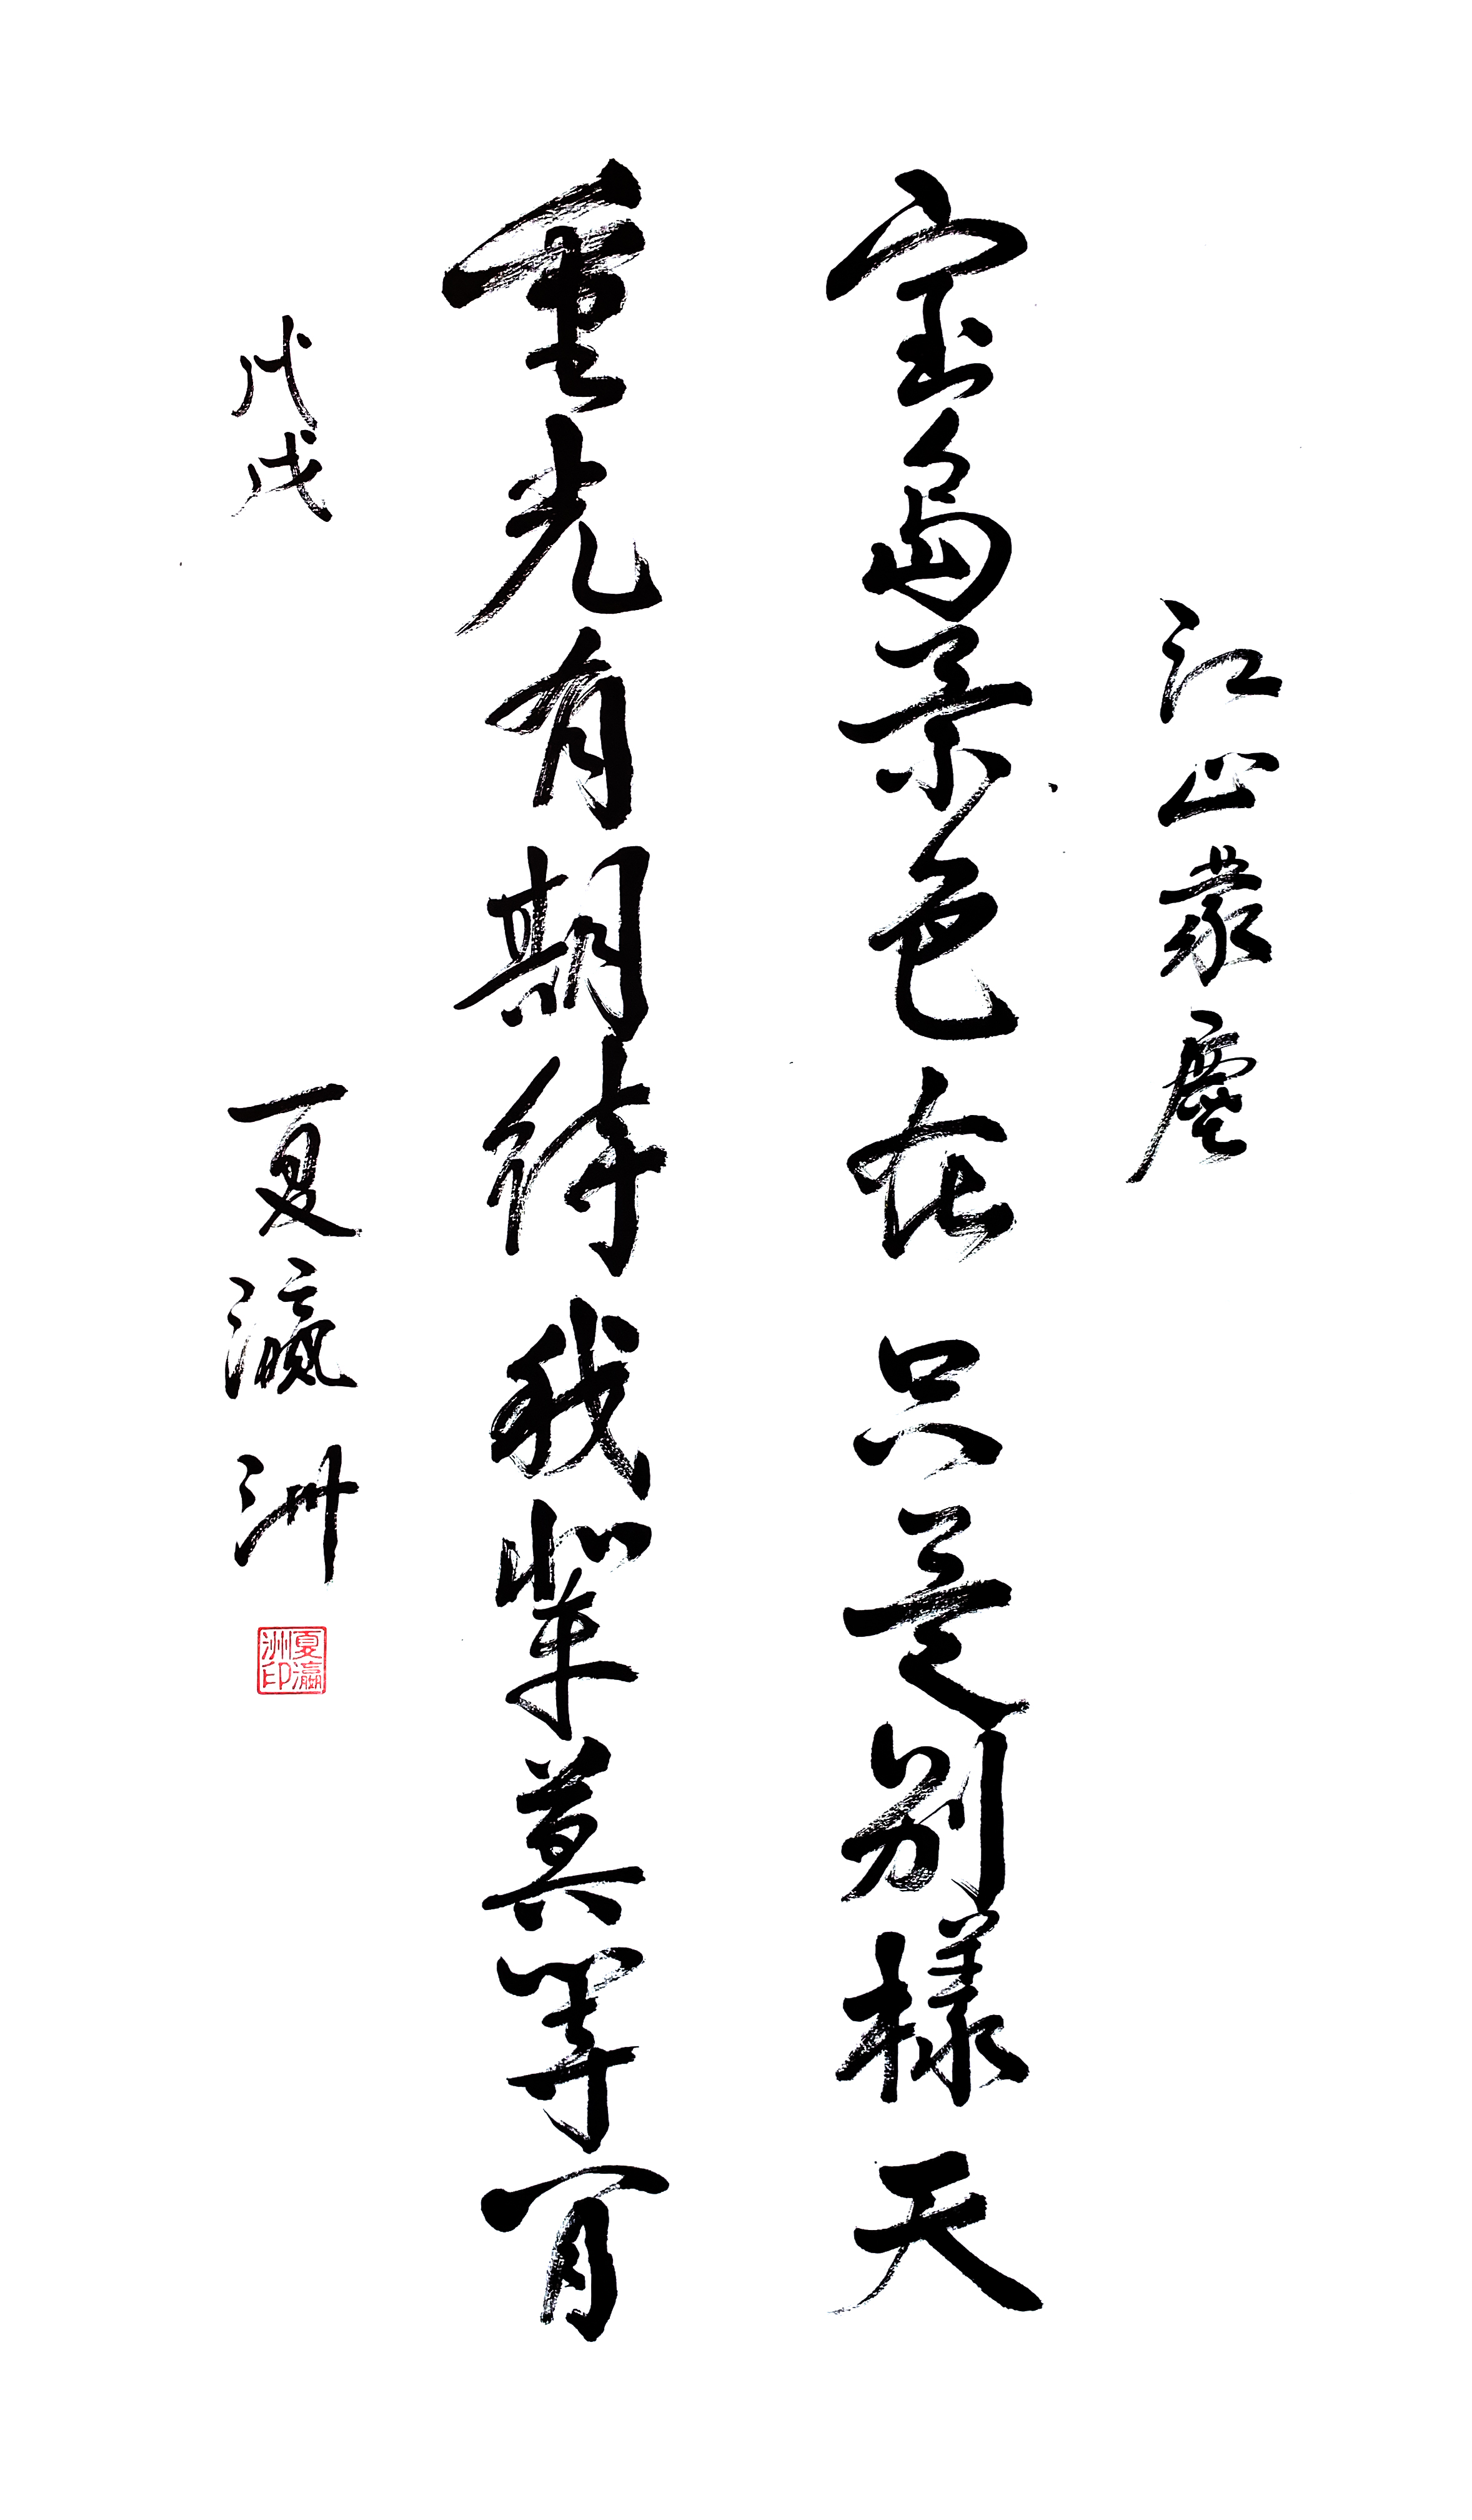 江山蒙塵
宝島景色在只是别樣天
重光有期待我輩莫等閒
戊戌 夏瀛洲
夏瀛洲印